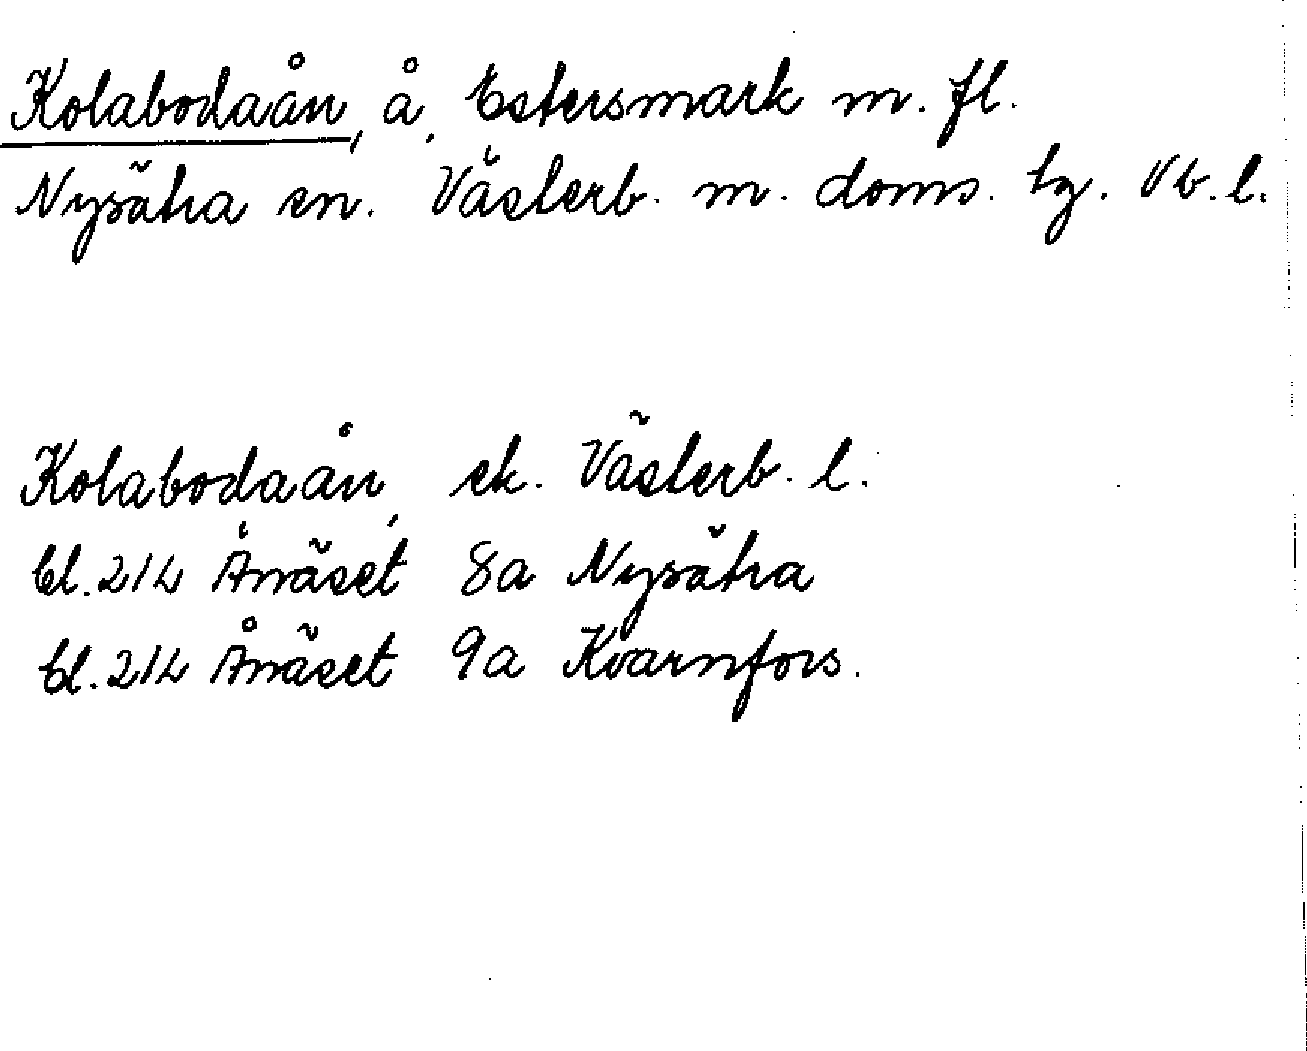 Kolabodaån, å, Estersmark m. fl.
Nysätra sn. Västerb. m. doms. tg. Vb. l.
Kolabodaån, ek. Västerb. l.
bl. 214 Ånäset 8a Nysätra
bl. 214 Ånäset 9a Kvarnfors.